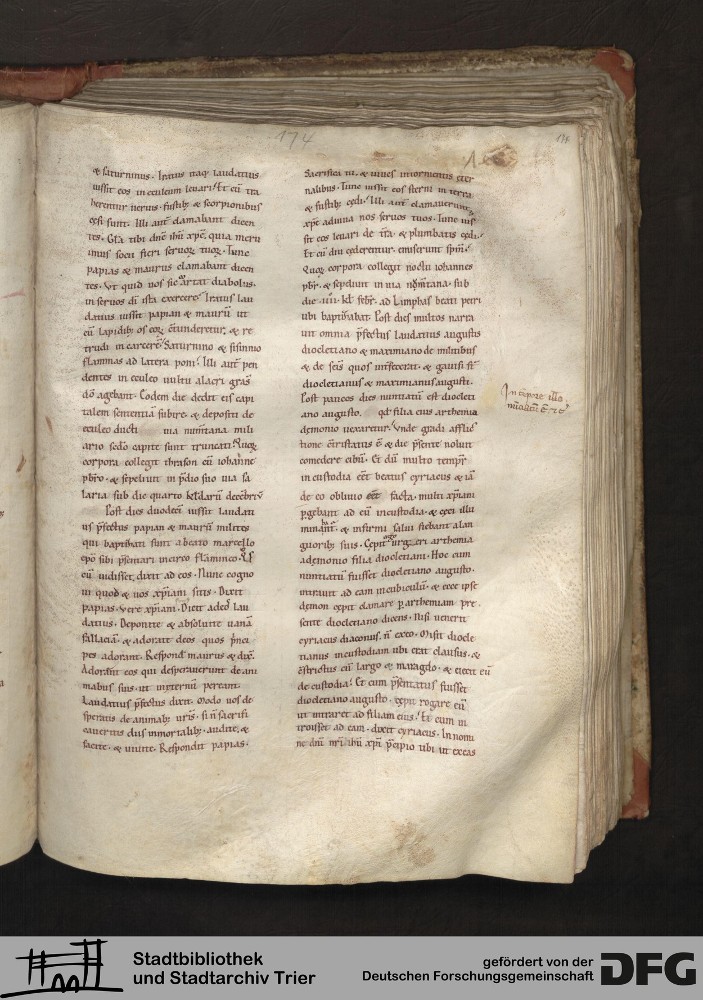 174
174
& saturninus. Iratus itaq; laudatius
iussit eos in eculeum leuari. Et cū tra
herentur neruis. fustib; & scorpionibus
cęsi sunt. Illi aut̄ clamabant dicen
tes. Gl̄a tibi dn̄e ihū xp̄e. quia meru
imus socii fieri seruoꝝ tuoꝝ. Tunc
papias & maurus clamabant dicen
tes. Vt quid uos sic artat diabolus.
in seruos dī ista exercere? Iratus lau
datius iussit papian & maurū ut
cū lapidib; os eoꝝ c̄tunderetur. & re
trudi in carcerē. Saturnino & sisinnio
flammas ad latera poni. Illi aut̄ pen
dentes in eculeo uultu alacri gras̄
dō agebant. Eodem die dedit eis capi
talem sententiā subire. & depositi de
eculeo ducti uia numentana mili
ario scdo capite sunt truncati. Quoꝝ
corpora collegit thrason cū iohanne
pb̄ro. & sepeliuit in p̄dio suo uia sa
laria sub die quarto kalendarū decēbriū
Post dies duodeci iussit laudati
us p̄fectus papian & maurū milites
qui baptizati sunt a beato marcello
ep̄o sibi p̄sentari in circo flammineo. Quos
cū uidisset. dixit ad eos. Nunc cogno
ui quod & uos xp̄iani sitis. Dixit
papias. Vere xp̄iani. Dicit ad eos lau
datius. Deponite & absoluite uanā
fallaciā. & adorate deos quos p̄nci
pes adorant. Respond̄ maurus & dix̄.
Adorant eos qui desperauerunt de ani
mabus suis. ut in et̄nū pereant.
Laudatius p̄fectus dixit. Modo uos de
speratis de animab; ur̄is. si n̄ sacrifi
caueritis diis inmortalib; audite. &
facite. & uiuite. Respondit papias.
Sacrifica tu. & uiues in tormentis eter
nalibus. Tunc iussit eos sterni in terra
& fustib; cędi. Illi aut̄ clamauerunt.
xp̄e adiuua nos seruos tuos. Tunc ius
sit eos leuari de t̄ra. & plumbatis cędi.
Et cū diu cederentur. emiserunt sp̄m.
Quoꝝ corpora collegit noctu iohannes
pb̄r. & sepeliuit in uia numentana. sub
die .iiii. kl̄ febr̄. ad lamphas beati petri
ubi baptizabat. Post dies multos narra
uit omnia p̄fectus laudatius augustis
diocletiano & maximiano de militibus
& de sc̄is quos int̄fecerat. & gauisi s̄t
diocletianus & maximianus augusti.
Post paucos dies nuntiatū est diocleti
ano augusto. qd̄ filia eius arthemia
demonio uexaretur. Vnde gradi afflic
tione c̄tristatus ē. & die p̄sente noluit
comedere cibū. Et dū multo tempr̄
in custodia eēt beatus cyriacus. & iā
de eo obliuio eēt facta. multi xp̄iani
p̄gebant ad eū in custodia. & cęci illu
minanť. & infirmi salui fiebant a lan
guorib; suis. Cepit urgeri arthemia
a demonio filia diocletiani. Hoc cum
nuntiatū fuisset diocletiano augusto.
intrauit ad eam in cubiculū. & ecce ipse
demon cepit clamare p̄ arthemiam pre
sente diocletiano dicens. Nisi uenerit
cyriacus diaconus. n̄ exeo. Misit diocle
tianus in custodiam ubi erat clausus. &
c̄strictus cū largo & maragdo. & eiecit eū
de custodia. Et cum p̄sentatus fuisset
diocletiano augusto. cepit rogare eū
ut intraret ad filiam eius. Et cum in
troisset ad eam. dixit cyriacus. In nomi
ne dn̄i nr̄i ihū xp̄i p̄cipio tibi ut exeas
In tēpore illo
Stadtbibliothek
und Stadtarchiv Trier
gefördert von der
Deutschen Forschungsgemeinschaft
DFG